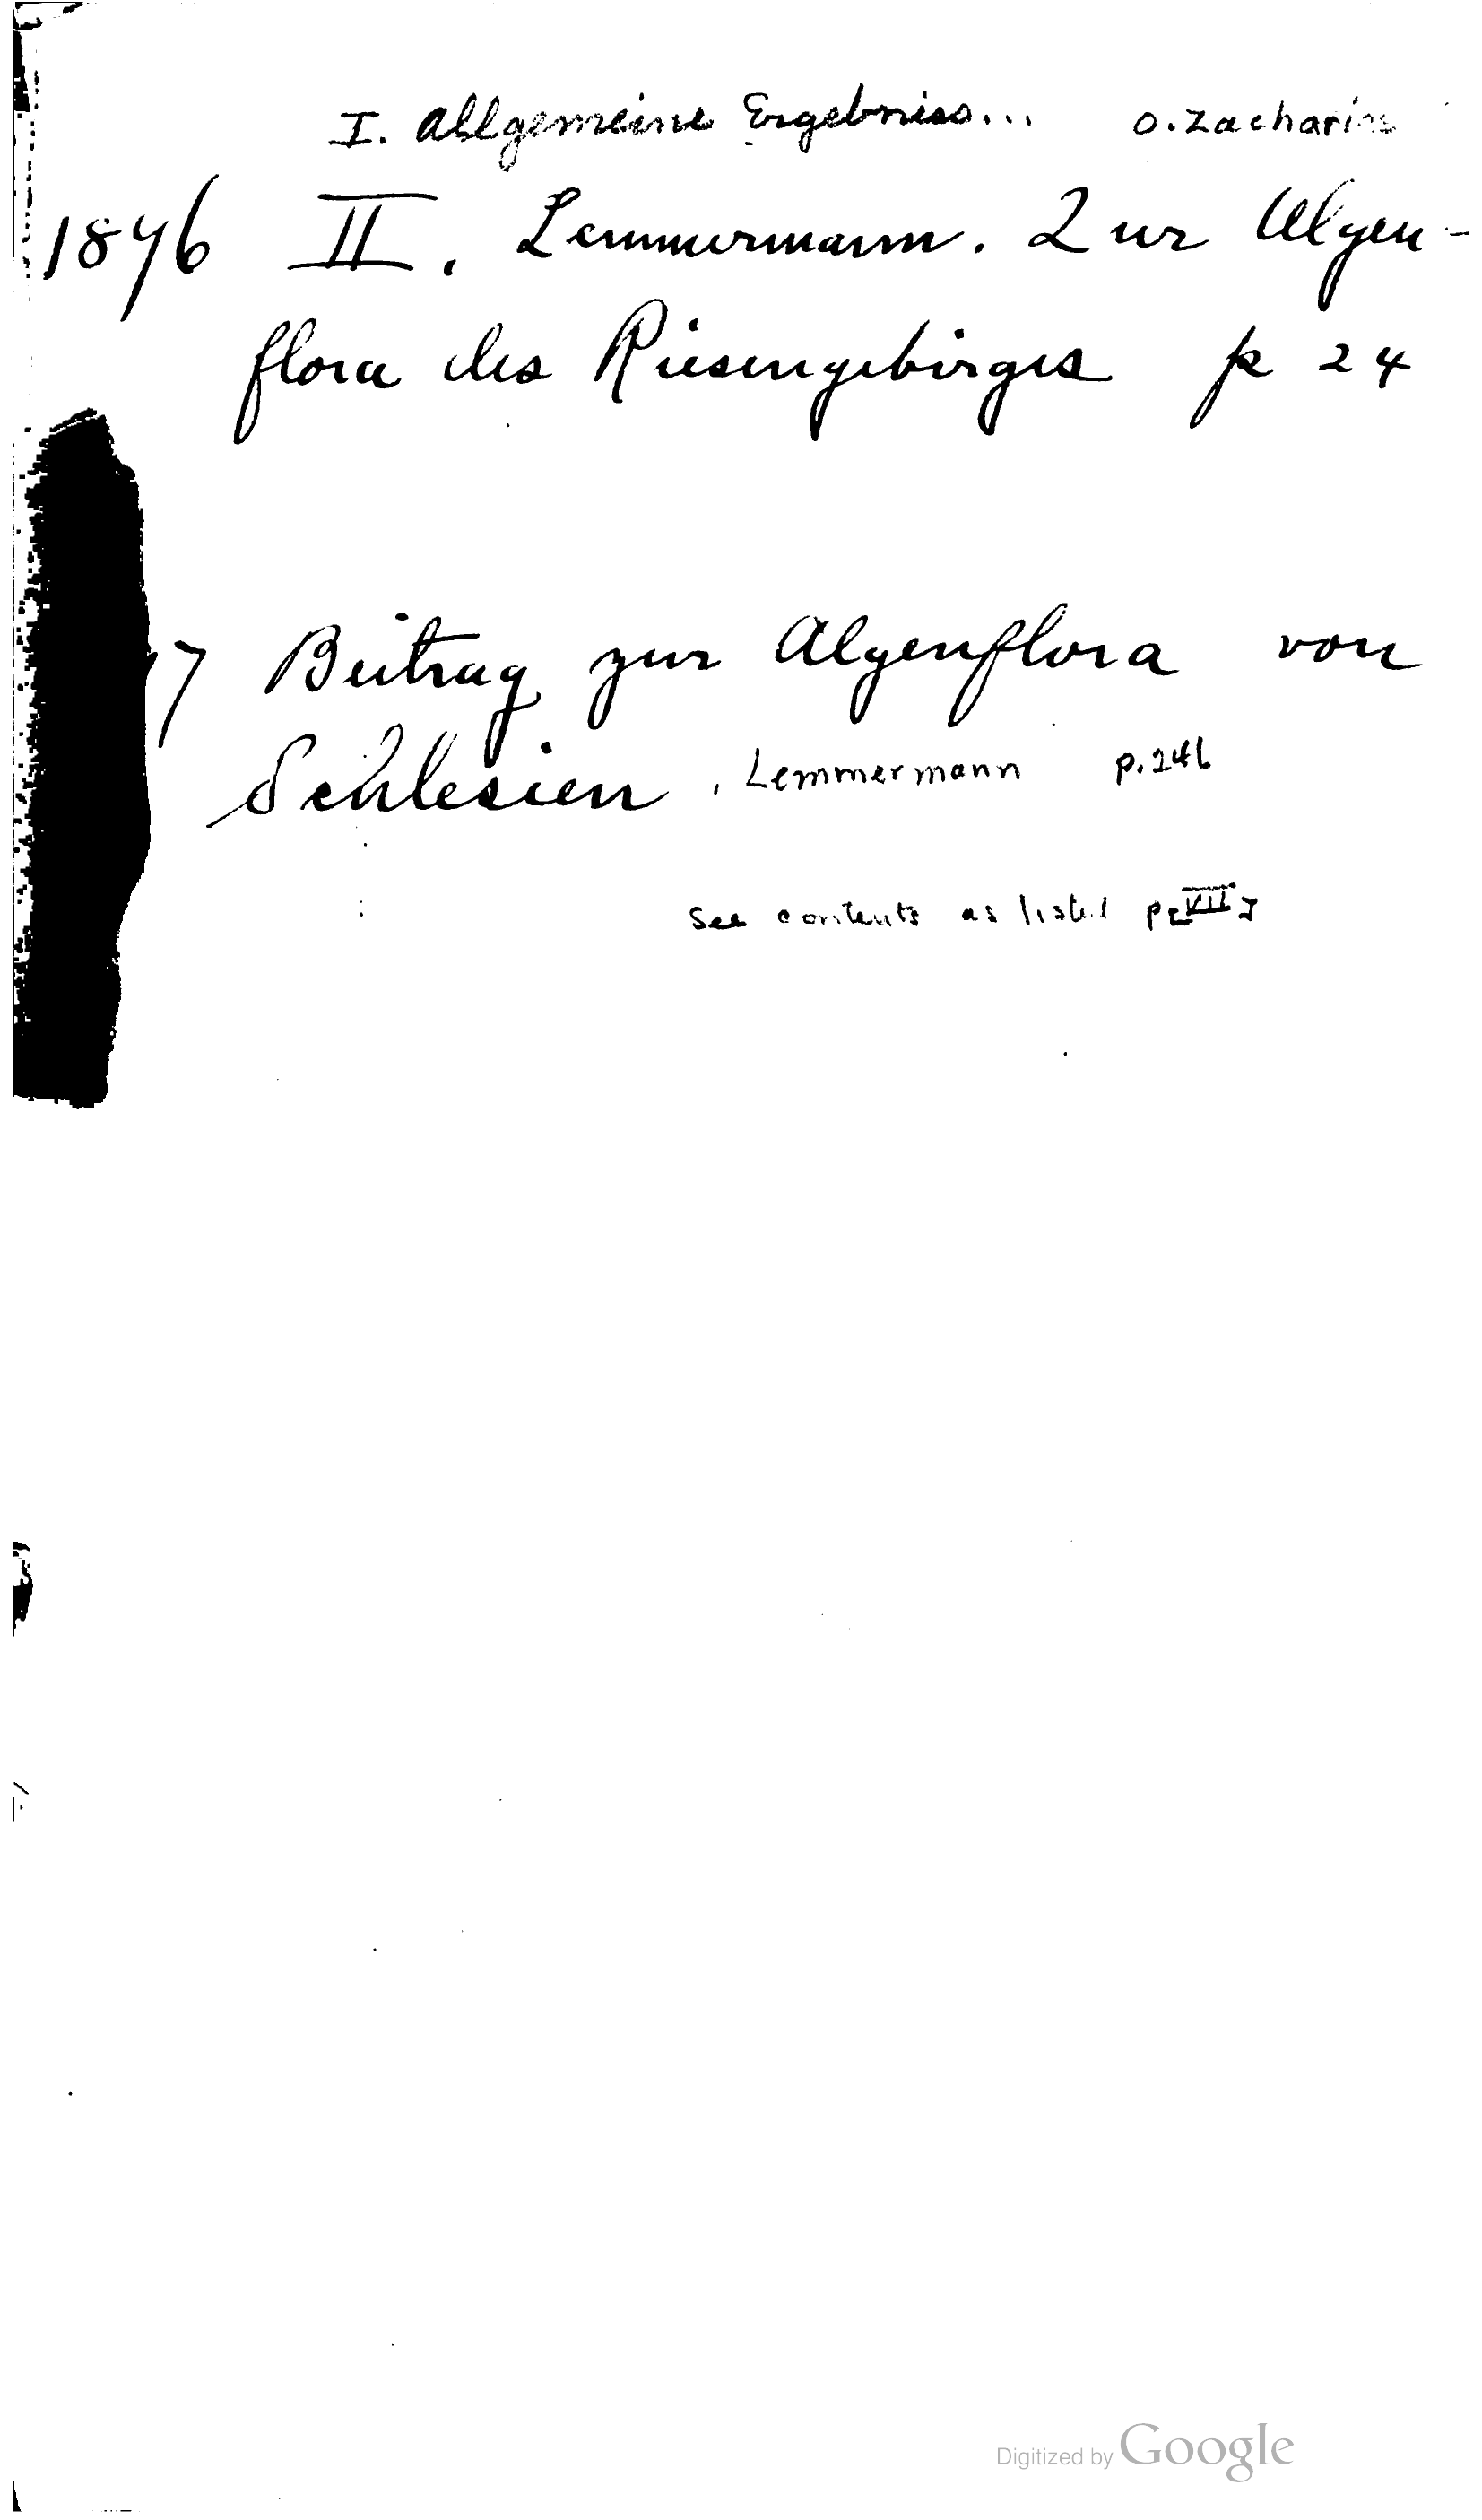 I. Allgemeine Ergebniss... O. Zacharias
1896 II. Lemmermann. Zur Algen-
flora des Riesengebirges p 24
7 Beitrag zur Algenflora von
Schlesien, Lemmermann
See contents as listed p[VII]
Digitized by Google